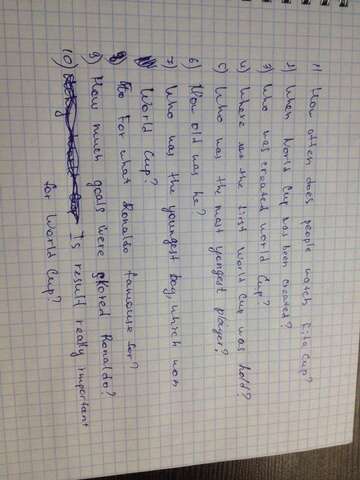 1) How often does people watch Fifa Cup?
2) When World Cup has been created?
3) Who was created World Cup?
4) Where was the first World Cup was hold?
5) Who was the most yongest player?
6) How old was he?
7) Who was the youngest boy, which won
World Cup?
8) For what Ronaldo famouse for?
9) How much goals were skored Ronaldo?
10) Is result really important
for World Cup?